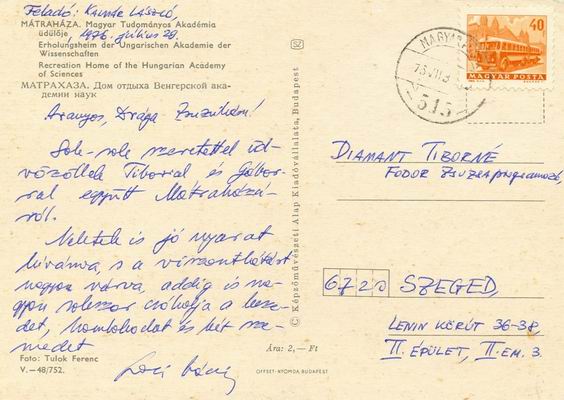 Feladó: KALMÁR LÁSZLÓ,
MÁTRAHÁZA. Magyar Tudományos Akadémia
üdülője, 1976. július 29.
Erholungsheim der Ungarischen Akademie der
Wissenschaften
Recreation Home of the Hungarian Academy
of Sciences
МАТРАХАЗА. Дом отдыха Венгерской ака-
демии наук
Aranyos, Drága Zsuzsikám!
Sok-sok szeretettel üd-
vözöllek Tiborral és Gábor-
ral együtt Mátraházá-
ról.
Neked is jó nyarat
kívánva, s a viszontlátást
nagyon várva, addig is na-
gyon sokszor csókolja a keze-
det, homlokodat és két sze-
medet
Laci bácsi
Foto: Tulok Ferenc
V.—48/752.
Ára: 2,— Ft
OFFSET-NYOMDA, BUDAPEST
© Képzőművészeti Alap Kiadóvállalata, Budapest
MAGYAR
515
40
MAGYAR POSTA
DIAMANT TIBORNÉ
FODOR ZSUZSA programozó,
6720 SZEGED,
LENIN KÖRÚT 36-38,
II. ÉPÜLET, II. EM. 3.